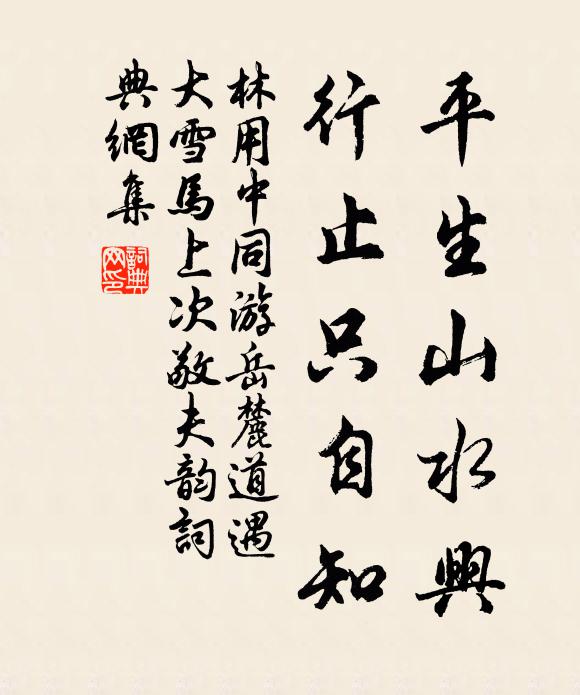 平生山水興
行止只自知
林用中同游岳麓道遇
大雪馬上次敬夫韵詞
典網集
詞典
网印